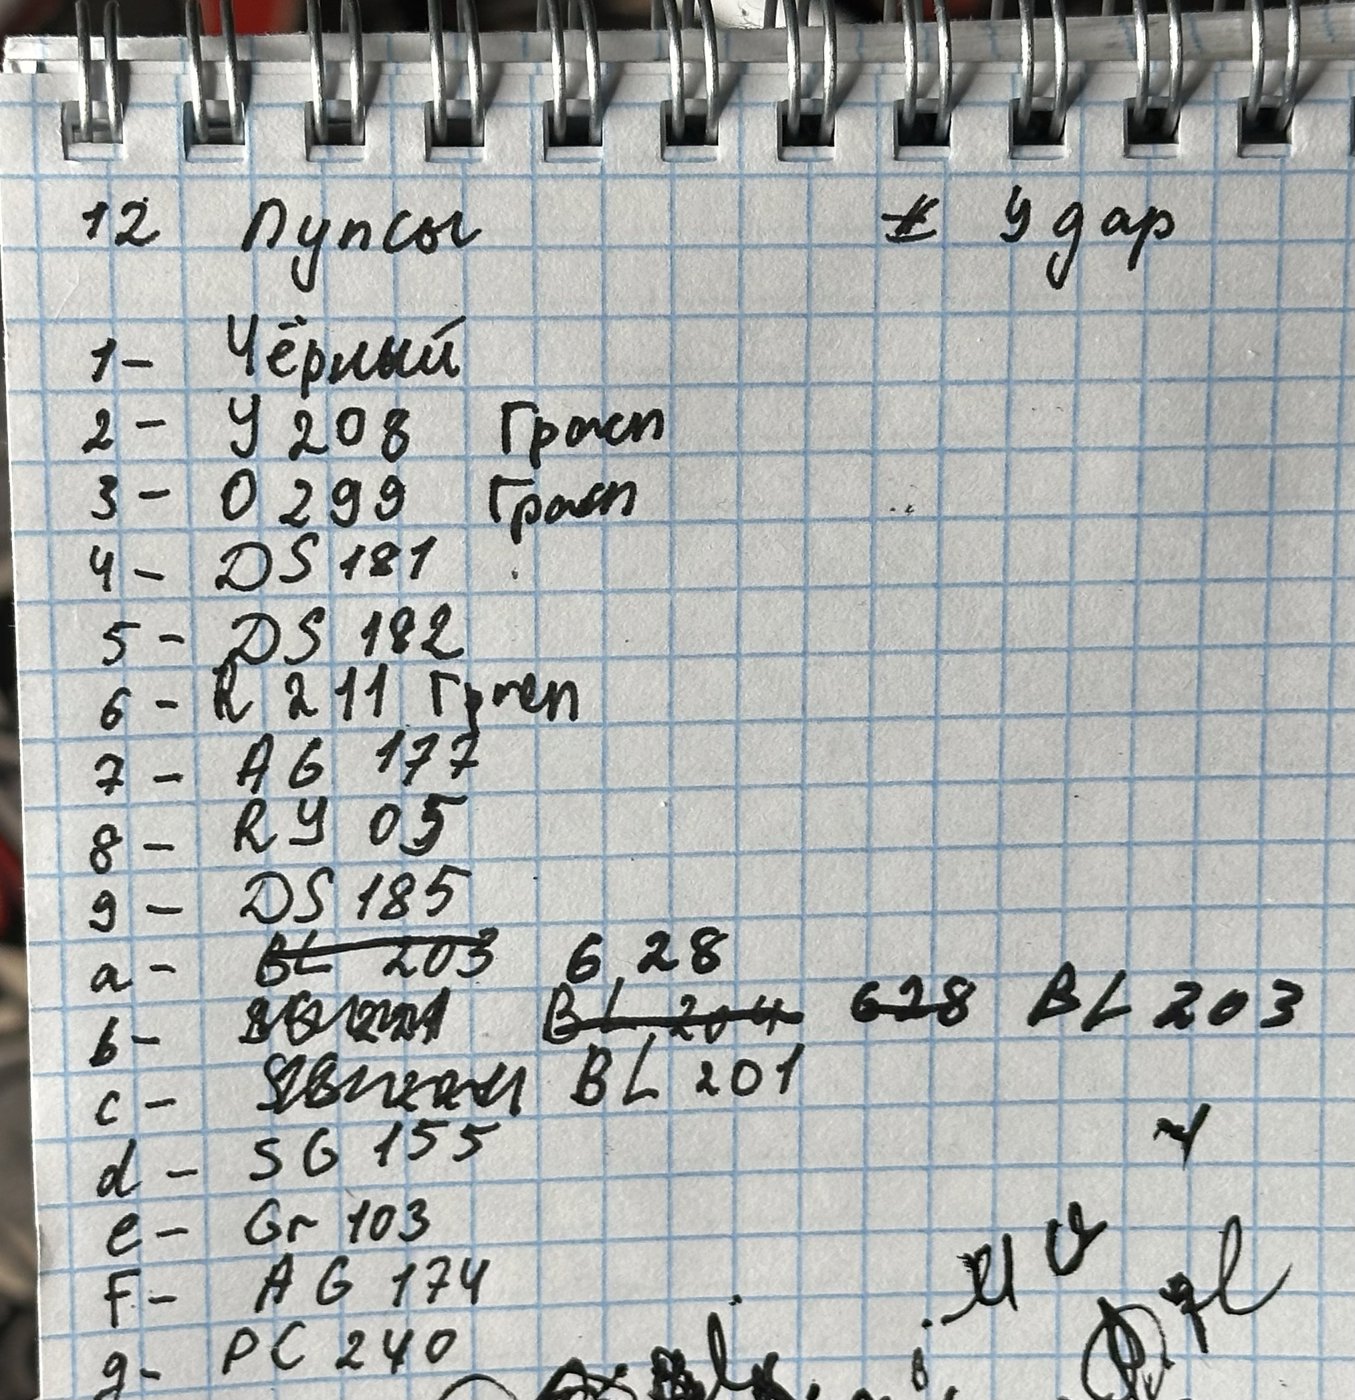 12 Пупсы * Удар
1- Чёрный
2- У 208 Грасп
3- O 299 Грасп
4- DS 181
5- DS 182
6- R 211 Грасп
7- AG 177
8- RY 05
9- DS 185
a- BL 203 G 28
b- BL 204 G28 BL 203
c- BL 201
d- SG 155
e- Gr 103
F- AG 174
g- PC 240